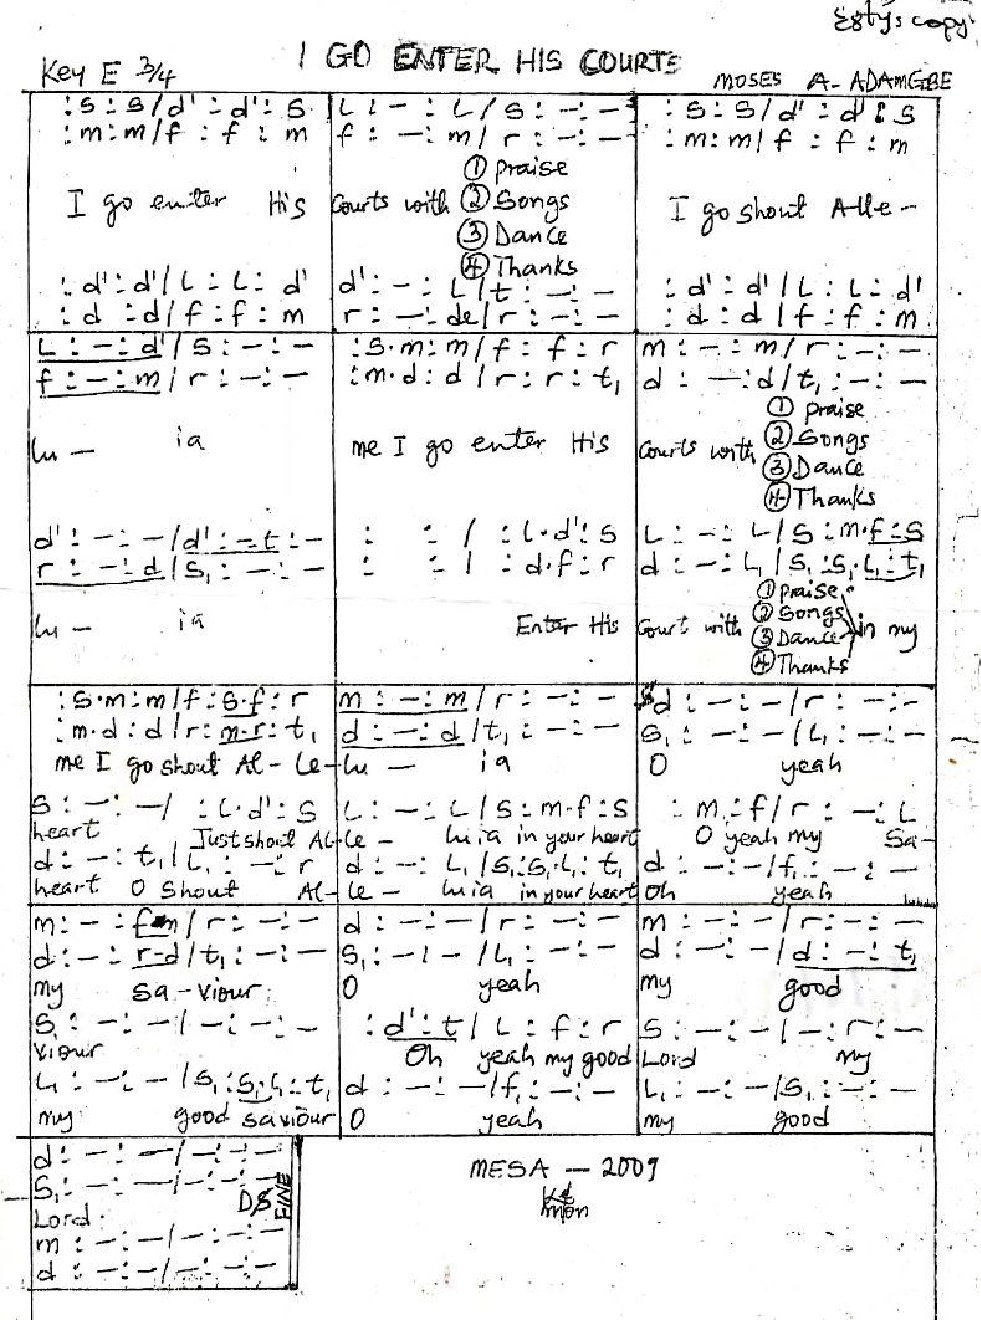 Esty's copy
I GO ENTER HIS COURTS
Key E 3/4
MOSES A. ADAMGBE
: s : s / d' : d' : s | L : – : L / s : – : – | : s : s / d' : d' : s
: m : m / f : f : m | f : – : m / r : – : – | : m : m / f : f : m
① Praise
I go enter His | Courts with ② Songs | I go shout A-lle-
③ Dance
④ Thanks
: d' : d' / L : L : d' | d' : – : L / t : – : – | : d' : d' / L : L : d'
: d : d / f : f : m | r : – : de / r : – : – | : d : d / f : f : m
L : – : d' / s : – : – | : s . m : m / f : f : r | m : – : m / r : – : –
f : – : m / r : – : – | : m . d : d / r : r : t, | d : – : d / t, : – : –
① Praise
lu – ia | me I go enter His | Courts with ② Songs
③ Dance
④ Thanks
d' : – : – / d' : – t : – | : : / : L . d' : s | L : – : L / s : m . f : s
r : – : d / s, : – : – | : : / : d . f : r | d : – : L, / s, : s, . L, : t,
① Praise
lu – ia | Enter His | Court with ② Songs in my
③ Dance
④ Thanks
: s . m : m / f : s . f : r | m : – : m / r : – : – | d : – : – / r : – : –
: m . d : d / r : m . r : t, | d : – : d / t, : – : – | s, : – : – / L, : – : –
me I go shout Al – Le – | lu – ia | O yeah
s : – : – / : L . d' : s | L : – : L / s : m . f : s | : m . : f / r : – : L
heart Just shout Al- | Le – luia in your heart | O yeah my Sa-
d : – : t, / L, : – : r | d : – : L, / s, : s, . L, : t, | d : – : – / f, : – : –
heart O Shout Al- | Le – luia in your heart | Oh yeah
m : – : f m / r : – : – | d : – : – / r : – : – | m : – : – / r : – : –
d : – : r – d / t, : – : – | s, : – : – / L, : – : – | d : – : – / d : – : t,
my sa – viour | O yeah | my good
s : – : – / – : – : – | : d' : t / L : f : r | s : – : – / – : r : –
viour | Oh yeah my good | Lord my
L, : – : – / s, : s, . L, : t, | d : – : – / f, : – : – | L, : – : – / s, : – : –
my good saviour | O yeah | my good
d : – : – / – : – : –
s, : – : – / – : – : –
Lord D.S FINE
m : – : – / – : – : –
d : – : – / – : – : –
MESA – 2009